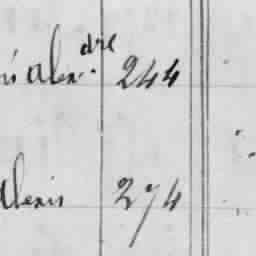 Alexdre 244
Alexis 274